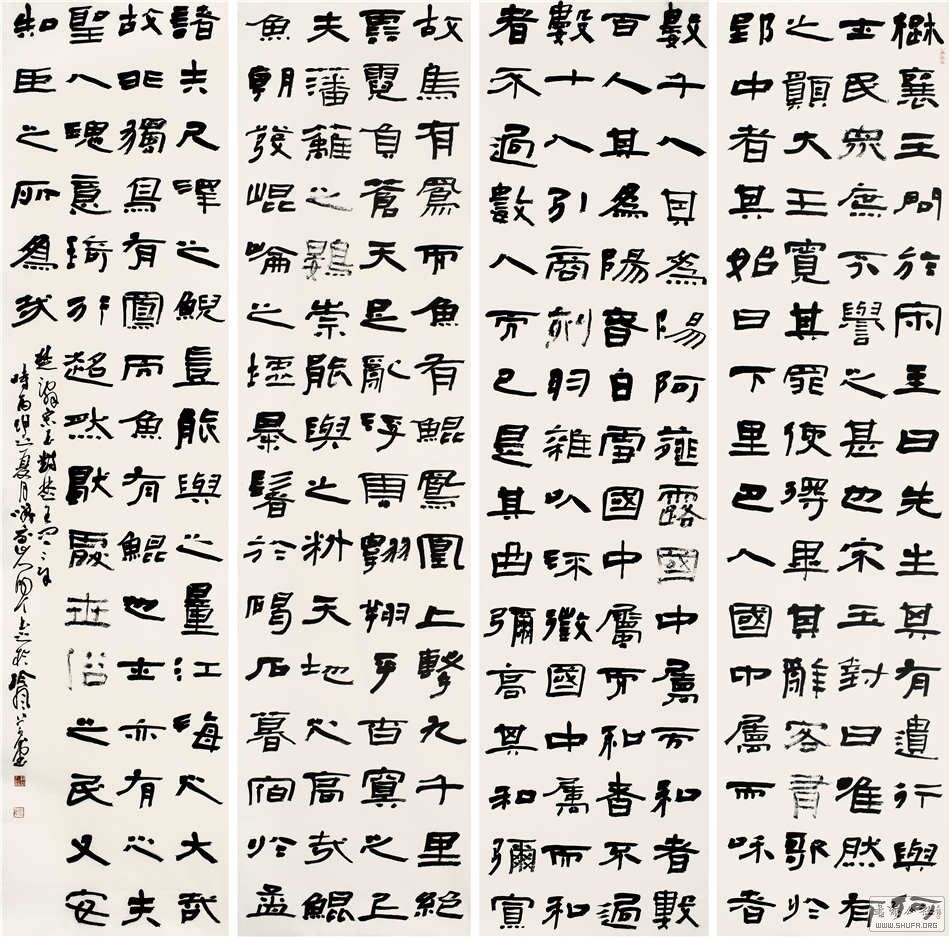 楚襄王問於宋玉曰先生其有遺行與何
士民眾庶不譽之甚也宋玉對曰唯然有
之願大王寬其罪使得畢其辭客有歌於
郢中者其始曰下里巴人國中屬而和者
數千人其爲陽阿薤露國中屬而和者數
百人其爲陽春白雪國中屬而和者不過
數十人引商刻羽雜以流徵國中屬而和
者不過數人而已是其曲彌高其和彌寡
故鳥有鳳而魚有鯤鳳凰上擊九千里絕
雲霓負蒼天足亂浮雲翱翔乎杳冥之上
夫藩籬之鷃豈能與之料天地之高哉鯤
魚朝發崐崘之墟暴鬐於碣石暮宿於孟
諸夫尺澤之鯢豈能與之量江海之大哉
故非獨鳥有鳳而魚有鯤也士亦有之夫
聖人瑰意琦行超然獨處世俗之民又安
知臣之所爲哉
楚辭宋玉對楚王問
WWW.SHUFA.ORG